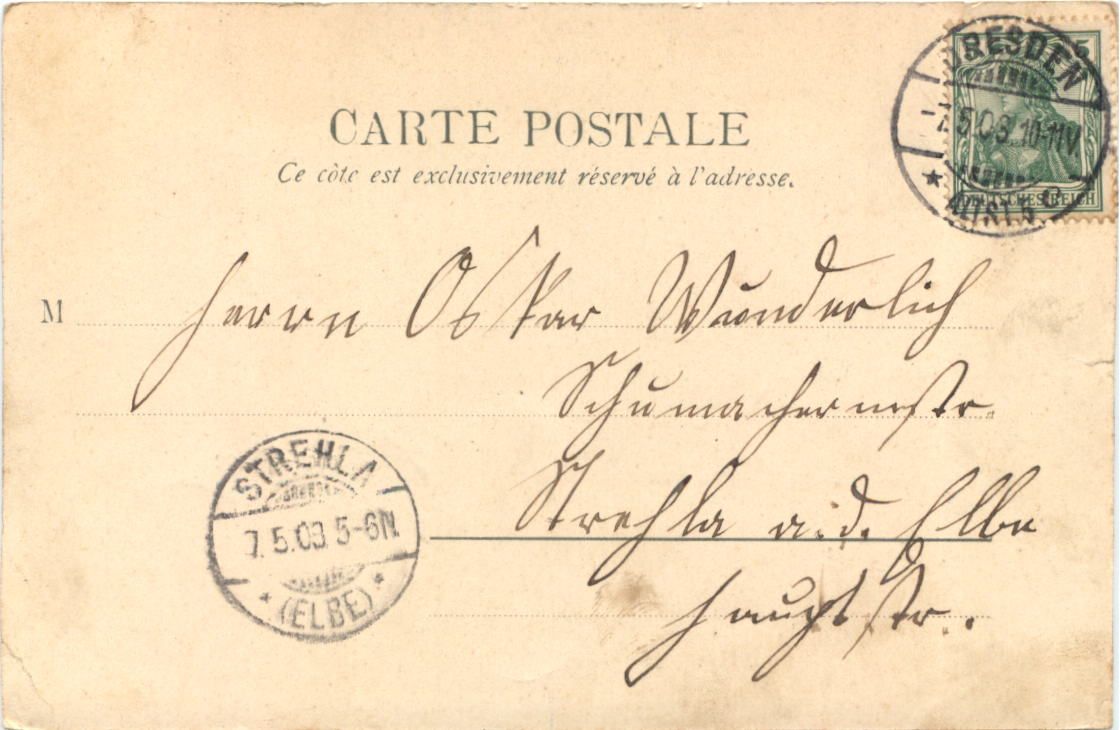 CARTE POSTALE
Ce côte est exclusivement réservé à l'adresse.
DRESDEN
7.5.03.10-11V.
ALTST. 5
5
DEUTSCHES REICH
M
Herrn Oskar Wunderlich
Schumachermstr.
Strehla a.d. Elbe
Hauptstr.
STREHLA
7.5.03 5-6N.
(ELBE)